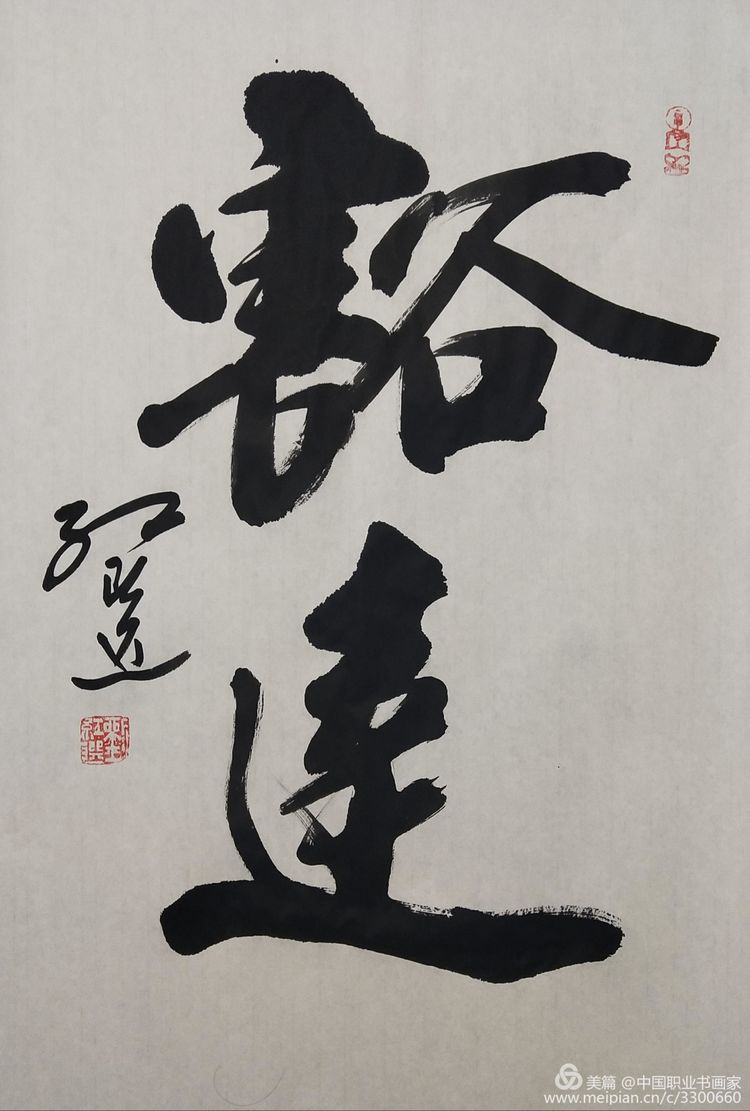 豁達
红选
美篇 @中国职业书画家
www.meipian.cn/c/3300660